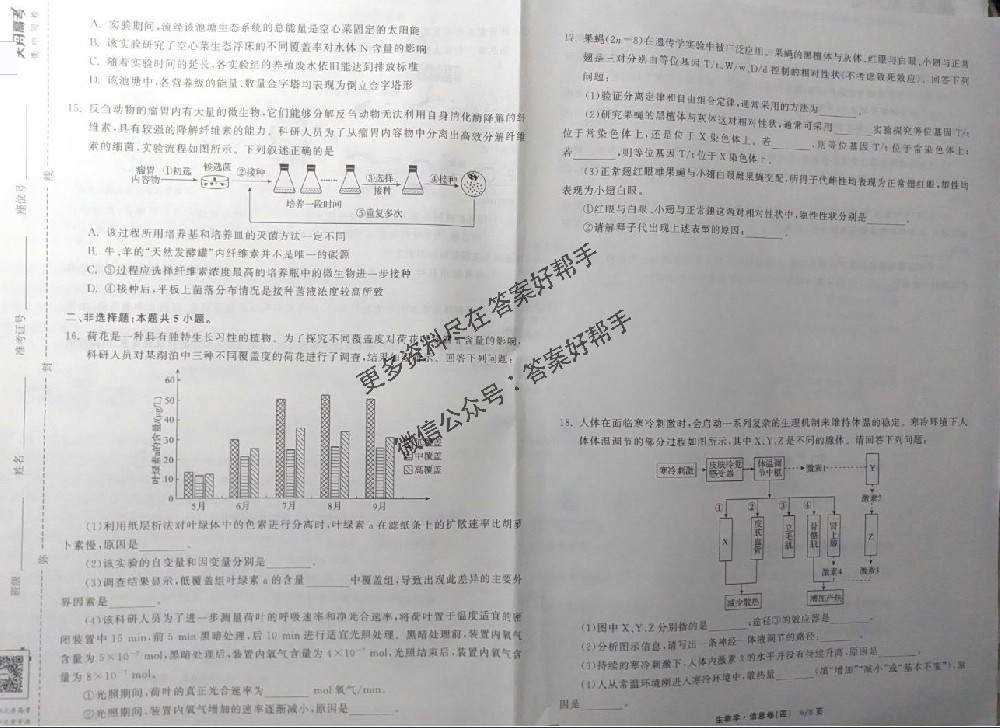 A. 实验期间,流经该池塘生态系统的总能量是空心菜固定的太阳能
B. 该实验研究了空心菜生态浮床的不同覆盖率对水体 N 含量的影响
C. 随着实验时间的延长,各实验组的养殖发水依旧能达到排放标准
D. 该池塘中,各营养级的能量、数量金字塔均表现为倒立金字塔形
15. 反刍动物的瘤胃内有大量的微生物,它们能够分解反刍动物无法利用自身消化酶降解的纤
维素,具有较强的降解纤维素的能力。科研人员为了从瘤胃内容物中分离出高效分解纤维
素的细菌,实验流程如图所示。下列叙述正确的是
瘤胃 ①初选 候选菌 ②接种 ③选择 ④接种
内容物 接种
培养一段时间
⑤重复多次
A. 该过程所用培养基和培养皿的灭菌方法一定不同
B. 牛、羊的“天然发酵罐”内纤维素并不是唯一的碳源
C. ③过程应选择纤维素浓度最高的培养瓶中的微生物进一步接种
D. ④接种后,平板上菌落分布情况是接种菌液浓度较高所致
二、非选择题:本题共 5 小题。
16. 荷花是一种具有独特生长习性的植物。为了探究不同覆盖度对荷花 含量的影响,
科研人员对某湖泊中三种不同覆盖度的荷花进行了调查,结果 回答下列问题:
叶绿素a的含量/(μg/L)
60
50
40
30
20
10
0
5月 6月 7月 8月 9月
覆盖
中覆盖
高覆盖
(1)利用纸层析法对叶绿体中的色素进行分离时,叶绿素 a 在滤纸条上的扩散速率比胡萝
卜素慢,原因是
。
(2)该实验的自变量和因变量分别是
。
(3)调查结果显示,低覆盖组叶绿素 a 的含量 中覆盖组,导致出现此差异的主要外
界因素是
。
(4)该科研人员为了进一步测量荷叶的呼吸速率和净光合速率,将荷叶置于温度适宜的密
闭装置中 15 min,前 5 min 黑暗处理,后 10 min 进行适宜光照处理。黑暗处理前,装置内氧气
含量为 5×10⁻⁷ mol,黑暗处理后,装置内氧气含量为 4×10⁻⁷ mol,光照结束后,装置内氧气含
量为 8×10⁻⁷ mol。
①光照期间,荷叶的真正光合速率为 mol 氧气/min。
②光照期间,装置内氧气增加的速率逐渐减小,原因是
。
17. 果蝇(2n=8)在遗传学实验中被广泛应用。果蝇的黑檀体与灰体、红眼与白眼、小翅与正常
翅是三对分别由等位基因 T/t、W/w、D/d 控制的相对性状(不考虑致死效应)。回答下列
问题:
(1)验证分离定律和自由组合定律,通常采用的方法为
。
(2)研究果蝇的黑檀体与灰体这对相对性状,通常可采用 实验探究等位基因 T/t
位于常染色体上,还是位于 X 染色体上。若 ,则等位基因 T/t 位于常染色体上;
若 ,则等位基因 T/t 位于 X 染色体上。
(3)正常翅红眼雌果蝇与小翅白眼雄果蝇交配,所得子代雌性均表现为正常翅红眼,雄性均
表现为小翅白眼。
①红眼与白眼、小翅与正常翅这两对相对性状中,显性性状分别是
。
②请解释子代出现上述表型的原因:
。
18. 人体在面临寒冷刺激时,会启动一系列复杂的生理机制来维持体温的稳定。寒冷环境下人
体体温调节的部分过程如图所示,其中 X、Y、Z 是不同的腺体。请回答下列问题:
寒冷刺激 皮肤冷觉感受器 体温调节中枢 激素1 Y
激素2
① ② ③ ④
X 皮肤血管 立毛肌 骨骼肌 肾上腺 Z
激素4 激素3
减少散热 增加产热
(1)图中 X、Y、Z 分别指的是 ;途径③的效应器是
。
(2)分析图示信息,请写出一条神经—体液调节的路径:
。
(3)持续的寒冷刺激下,人体内激素 3 的水平并没有持续升高,原因是
。
(4)人从常温环境刚进入寒冷环境中,散热量 (填“增加”“减小”或“基本不变”),原
因是
。
生命学·信息卷(四)
6/8 页
更多资料尽在答案好帮手
微信公众号:答案好帮手
座位号
准考证号
姓名
班级
线
封